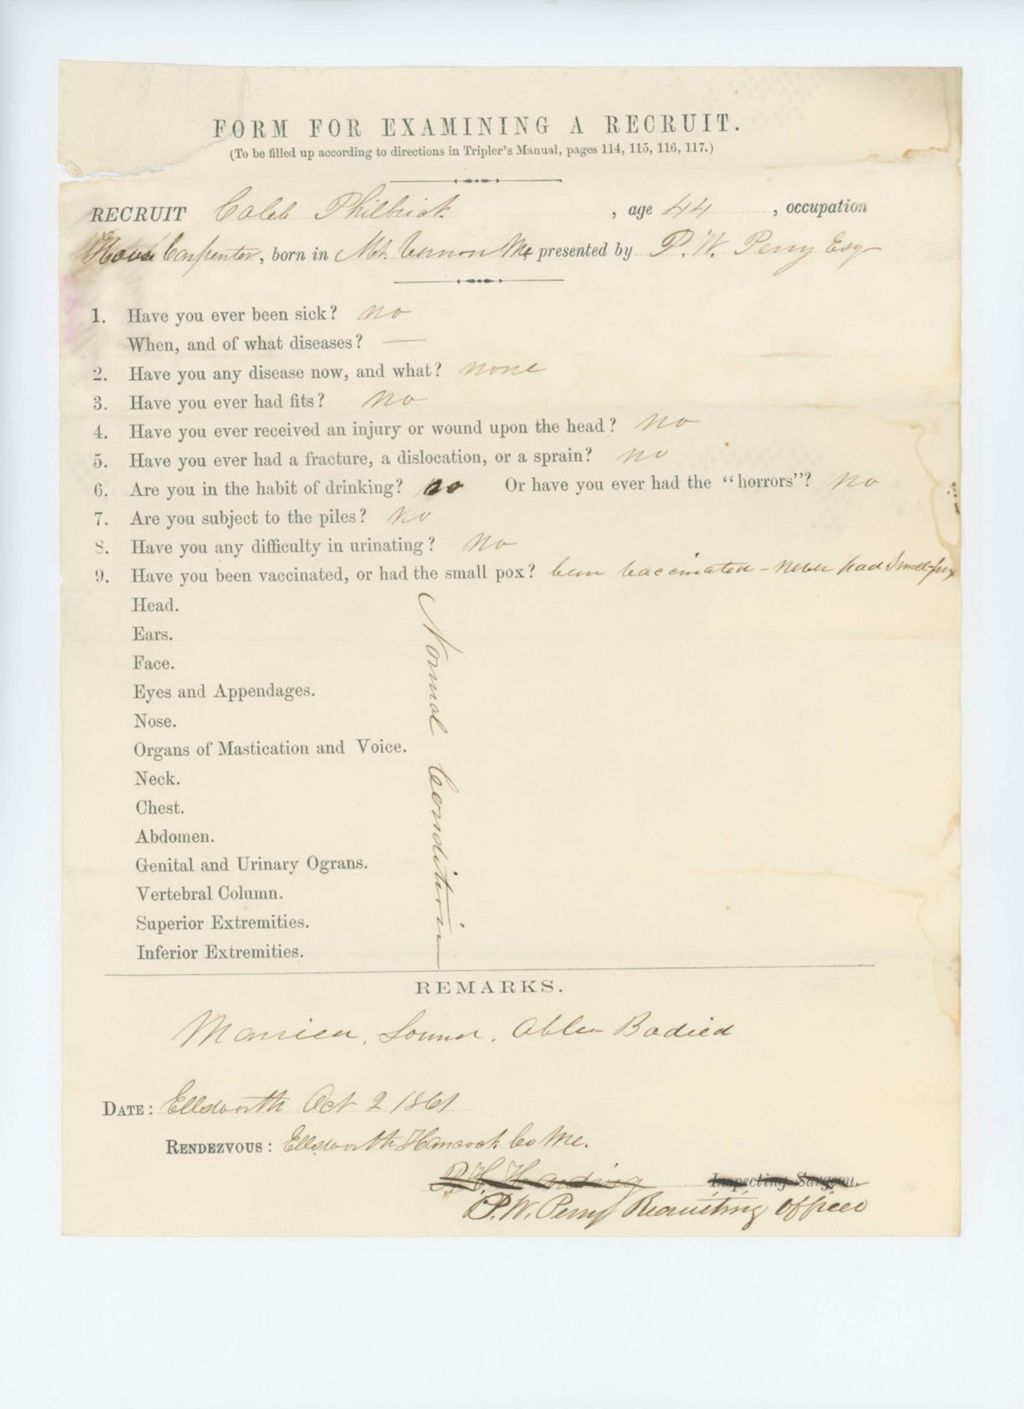 FORM FOR EXAMINING A RECRUIT.
(To be filled up according to directions in Tripler's Manual, pages 114, 115, 116, 117.)
RECRUIT Caleb Philbrick, age 44, occupation
House Carpenter, born in Mt. Vernon Me presented by P. W. Perry Esq
1. Have you ever been sick? no
When, and of what diseases? —
2. Have you any disease now, and what? none
3. Have you ever had fits? no
4. Have you ever received an injury or wound upon the head? no
5. Have you ever had a fracture, a dislocation, or a sprain? no
6. Are you in the habit of drinking? no Or have you ever had the "horrors"? no
7. Are you subject to the piles? no
8. Have you any difficulty in urinating? no
9. Have you been vaccinated, or had the small pox? been vaccinated - never had Small-pox
Head.
Ears.
Face.
Eyes and Appendages.
Nose.
Organs of Mastication and Voice.
Neck.
Chest.
Abdomen.
Genital and Urinary Ograns.
Vertebral Column.
Superior Extremities.
Inferior Extremities.
Normal Condition
REMARKS.
Married, Sound, Able Bodied
DATE: Ellsworth Oct 2 1861
RENDEZVOUS: Ellsworth Hancock Co Me.
P. H. Harding Inspecting Surgeon.
P. W. Perry Recruiting Officer